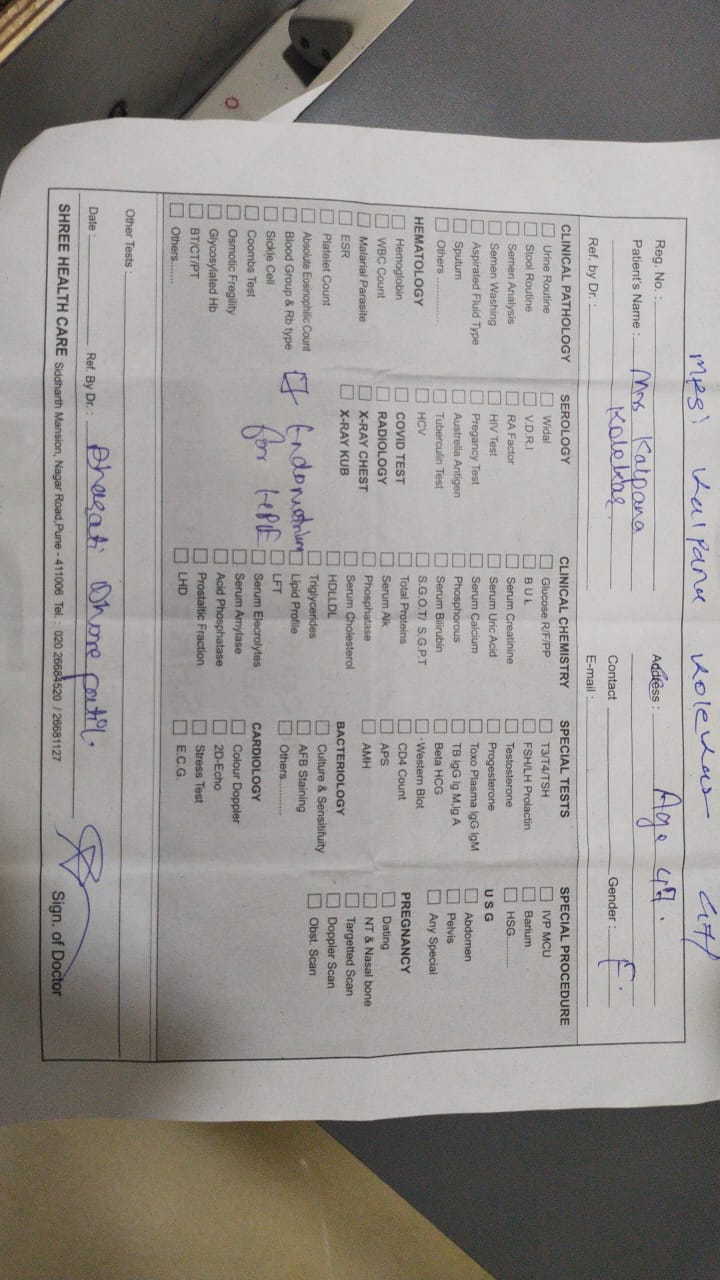 mrs Kalpana Kolekar 47/
Reg. No. :
Patient's Name : Mrs Kalpana
Kolekar
Ref. by Dr. :
Address : Age 47.
Contact
Gender : F.
E-mail :
CLINICAL PATHOLOGY
Urine Routine
Stool Routine
Semen Analysis
Semen Washing
Aspirated Fluid Type
Sputum
Others ..............
HEMATOLOGY
Hemoglobin
WBC Count
Malarial Parasite
ESR
Platelet Count
Absolute Eosinophilic Count
Blood Group & Rb type
Sickle Cell
Coombs Test
Osmotic Fregility
Glycosylated Hb
BT/CT/PT
Others.......
SEROLOGY
Widal
V.D.R.I
RA Factor
HIV Test
Pregancy Test
Australia Antigen
Tuberculin Test
HCV
COVID TEST
RADIOLOGY
X-RAY CHEST
X-RAY KUB
Endometrium
for HPE
CLINICAL CHEMISTRY
Glucose R/F/PP
B U L
Serum Creatinine
Serum Uric Acid
Serum Calcium
Phosphorous
Serum Bilirubin
S.G.O.T/ S.G.P.T
Total Proteins
Serum Alk
Phosphatase
Serum Cholesterol
HDLLDL
Triglycerides
Lipid Profile
LFT
Serum Elecrolytes
Serum Amylase
Acid Phosphatase
Prostaltic Fraction
LHD
SPECIAL TESTS
T3/T4/TSH
FSH/LH Prolactin
Testosterone
Progesterone
Toxo Plasma IgG IgM
TB IgG Ig M,Ig A
Beta HCG
Western Blot
CD4 Count
APS
AMH
BACTERIOLOGY
Culture & Sensitifuity
AFB Staining
Others...........
CARDIOLOGY
Colour Doppler
2D-Echo
Stress Test
E.C.G.
SPECIAL PROCEDURE
IVP MCU
Barium
HSG..........
U S G
Abdomen
Pelvis
Any Special
PREGNANCY
Dating
NT & Nasal bone
Targetted Scan
Doppler Scan
Obst. Scan
Other Tests :
Date : Ref. By Dr. : Bharati Dhorepatil.
SHREE HEALTH CARE Siddharth Mansion, Nagar Road,Pune - 411006 Tel : 020 26684520 / 26681127 Sign. of Doctor